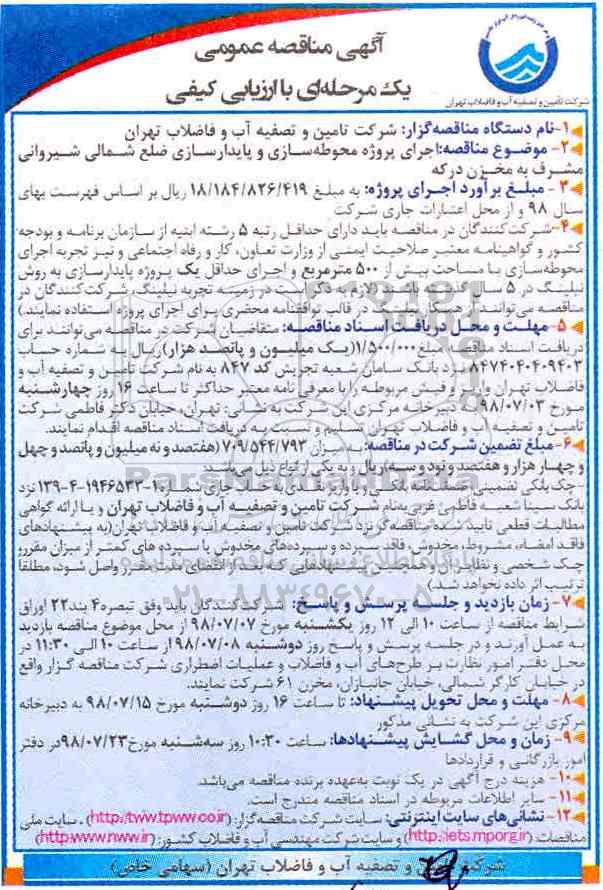 آگهی مناقصه عمومی
یک مرحله‌ای با ارزیابی کیفی
شرکت تأمین و تصفیه آب و فاضلاب تهران
۱-نام دستگاه مناقصه‌گزار: شرکت تامین و تصفیه آب و فاضلاب تهران
۲- موضوع مناقصه: اجرای پروژه محوطه‌سازی و پایدارسازی ضلع شمالی شیروانی
مشرف به مخزن درکه
۳ - مبلغ برآورد اجرای پروژه: به مبلغ ۱۸/۱۸۴/۸۲۶/۴۱۹ ریال بر اساس فهرست بهای
سال ۹۸ و از محل اعتبارات جاری شرکت
۴-شرکت‌کنندگان در مناقصه باید دارای حداقل رتبه ۵ رشته ابنیه از سازمان برنامه و بودجه
کشور و گواهینامه معتبر صلاحیت ایمنی از وزارت تعاون، کار و رفاه اجتماعی و نیز تجربه اجرای
محوطه‌سازی با مساحت بیش از ۵۰۰ مترمربع و اجرای حداقل یک پروژه پایدارسازی به روش
نیلینگ در ۵ سال گذشته باشند. (لازم به ذکر است در زمینه تجربه نیلینگ، شرکت‌کنندگان در
مناقصه می‌توانند از همکار ذیصلاح در قالب توافقنامه محضری برای اجرای پروژه استفاده نمایند)
۵- مهلت و محل دریافت اسناد مناقصه: متقاضیان شرکت در مناقصه می‌توانند برای
دریافت اسناد مناقصه مبلغ ۱/۵۰۰/۰۰۰(یک میلیون و پانصد هزار)ریال به شماره حساب
۸۴۷۴۰۴۰۴۰۹۴۰۳ نزد بانک سامان شعبه تجریش کد ۸۴۷ به نام شرکت تامین و تصفیه آب و
فاضلاب تهران واریز و فیش مربوطه را با معرفی نامه معتبر حداکثر تا ساعت ۱۶ روز چهارشنبه
مورخ ۹۸/۰۷/۰۳ به دبیرخانه مرکزی این شرکت به نشانی: تهران، خیابان دکتر فاطمی شرکت
تامین و تصفیه آب و فاضلاب تهران تسلیم و نسبت به دریافت اسناد مناقصه اقدام نمایند.
۶-مبلغ تضمین شرکت در مناقصه: به میزان ۷۰۹/۵۴۴/۷۹۳ (هفتصد و نه میلیون و پانصد و چهل
و چهار هزار و هفتصد و نود و سه)ریال و به یکی از انواع ذیل می‌باشد:
چک بانکی تضمینی، ضمانتنامه بانکی و یا واریز نقدی به حساب جاری شماره ۱-۱۹۴۶۵۳۳-۴-۱۳۹ نزد
بانک سینا شعبه فاطمی غربی به‌نام شرکت تامین و تصفیه آب و فاضلاب تهران و یا ارائه گواهی
مطالبات قطعی تایید شده مناقصه‌گر نزد شرکت تامین و تصفیه آب و فاضلاب تهران(به پیشنهادهای
فاقد امضاء، مشروط، مخدوش، فاقد سپرده و سپرده‌های مخدوش یا سپرده های کمتر از میزان مقرر،
چک شخصی و نظایر آن و همچنین پیشنهادهایی که بعد از انقضای مدت مقرر واصل شود، مطلقا
ترتیب اثر داده نخواهد شد.)
۷- زمان بازدید و جلسه پرسش و پاسخ: شرکت‌کنندگان باید وفق تبصره۴ بند۲۲ اوراق
شرایط مناقصه از ساعت ۱۰ الی ۱۲ روز یکشنبه مورخ ۹۸/۰۷/۰۷ از محل موضوع مناقصه بازدید
به عمل آورند و در جلسه پرسش و پاسخ روز دوشنبه ۹۸/۰۷/۰۸ از ساعت ۱۰ الی ۱۱:۳۰ در
محل دفتر امور نظارت بر طرح‌های آب و فاضلاب و عملیات اضطراری شرکت مناقصه گزار واقع
در خیابان کارگر شمالی، خیابان جانبازان، مخزن ۶۱ شرکت نمایند.
۸- مهلت و محل تحویل پیشنهاد: تا ساعت ۱۶ روز دوشنبه مورخ ۹۸/۰۷/۱۵ به دبیرخانه
مرکزی این شرکت به نشانی مذکور
۹- زمان و محل گشایش پیشنهادها: ساعت ۱۰:۳۰ روز سه‌شنبه مورخ۹۸/۰۷/۲۳در دفتر
امور بازرگانی و قراردادها
۱۰- هزینه درج آگهی در یک نوبت به‌عهده برنده مناقصه می‌باشد.
۱۱- سایر اطلاعات مربوطه در اسناد مناقصه مندرج است.
۱۲- نشانی‌های سایت اینترنتی: سایت شرکت مناقصه‌گزار: (http://www.tpww.co.ir) . سایت ملی
مناقصات: (http://iets.mporg.ir) و سایت شرکت مهندسی آب و فاضلاب کشور: (http:www.nww.ir)
شرکت تامین و تصفیه آب و فاضلاب تهران (سهامی خاص)
ParsNamadData
۰۲۱-۸۸۳۴۹۶۷۰-۵